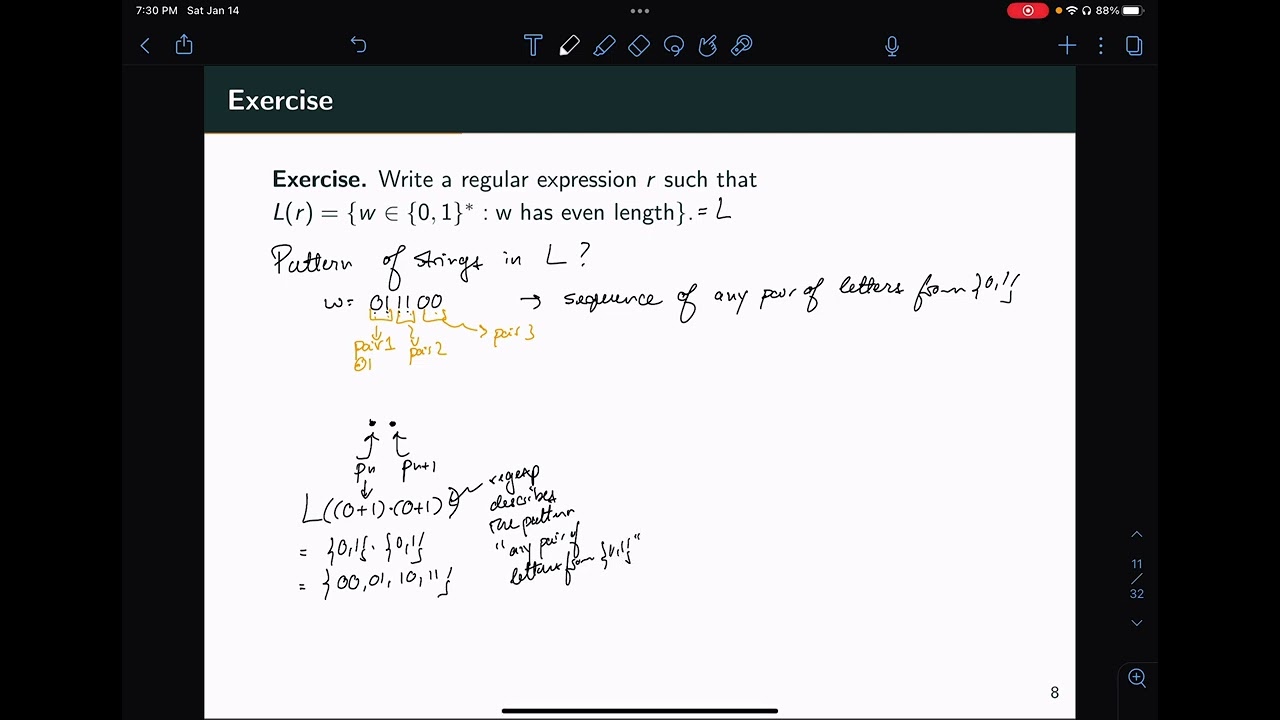 7:30 PM Sat Jan 14
88%
Exercise
Exercise. Write a regular expression r such that
L(r) = {w ∈ {0, 1}* : w has even length}. = L
Pattern of strings in L ?
w = 011100 → sequence of any pair of letters from {0,1}
pair 1 pair 2 pair 3
01
Pn Pn+1
L((0+1)·(0+1))
= {0,1} · {0,1}
= {00, 01, 10, 11}
regexp
describes
the pattern
"any pair of
letters from {0,1}"
11
/
32
8